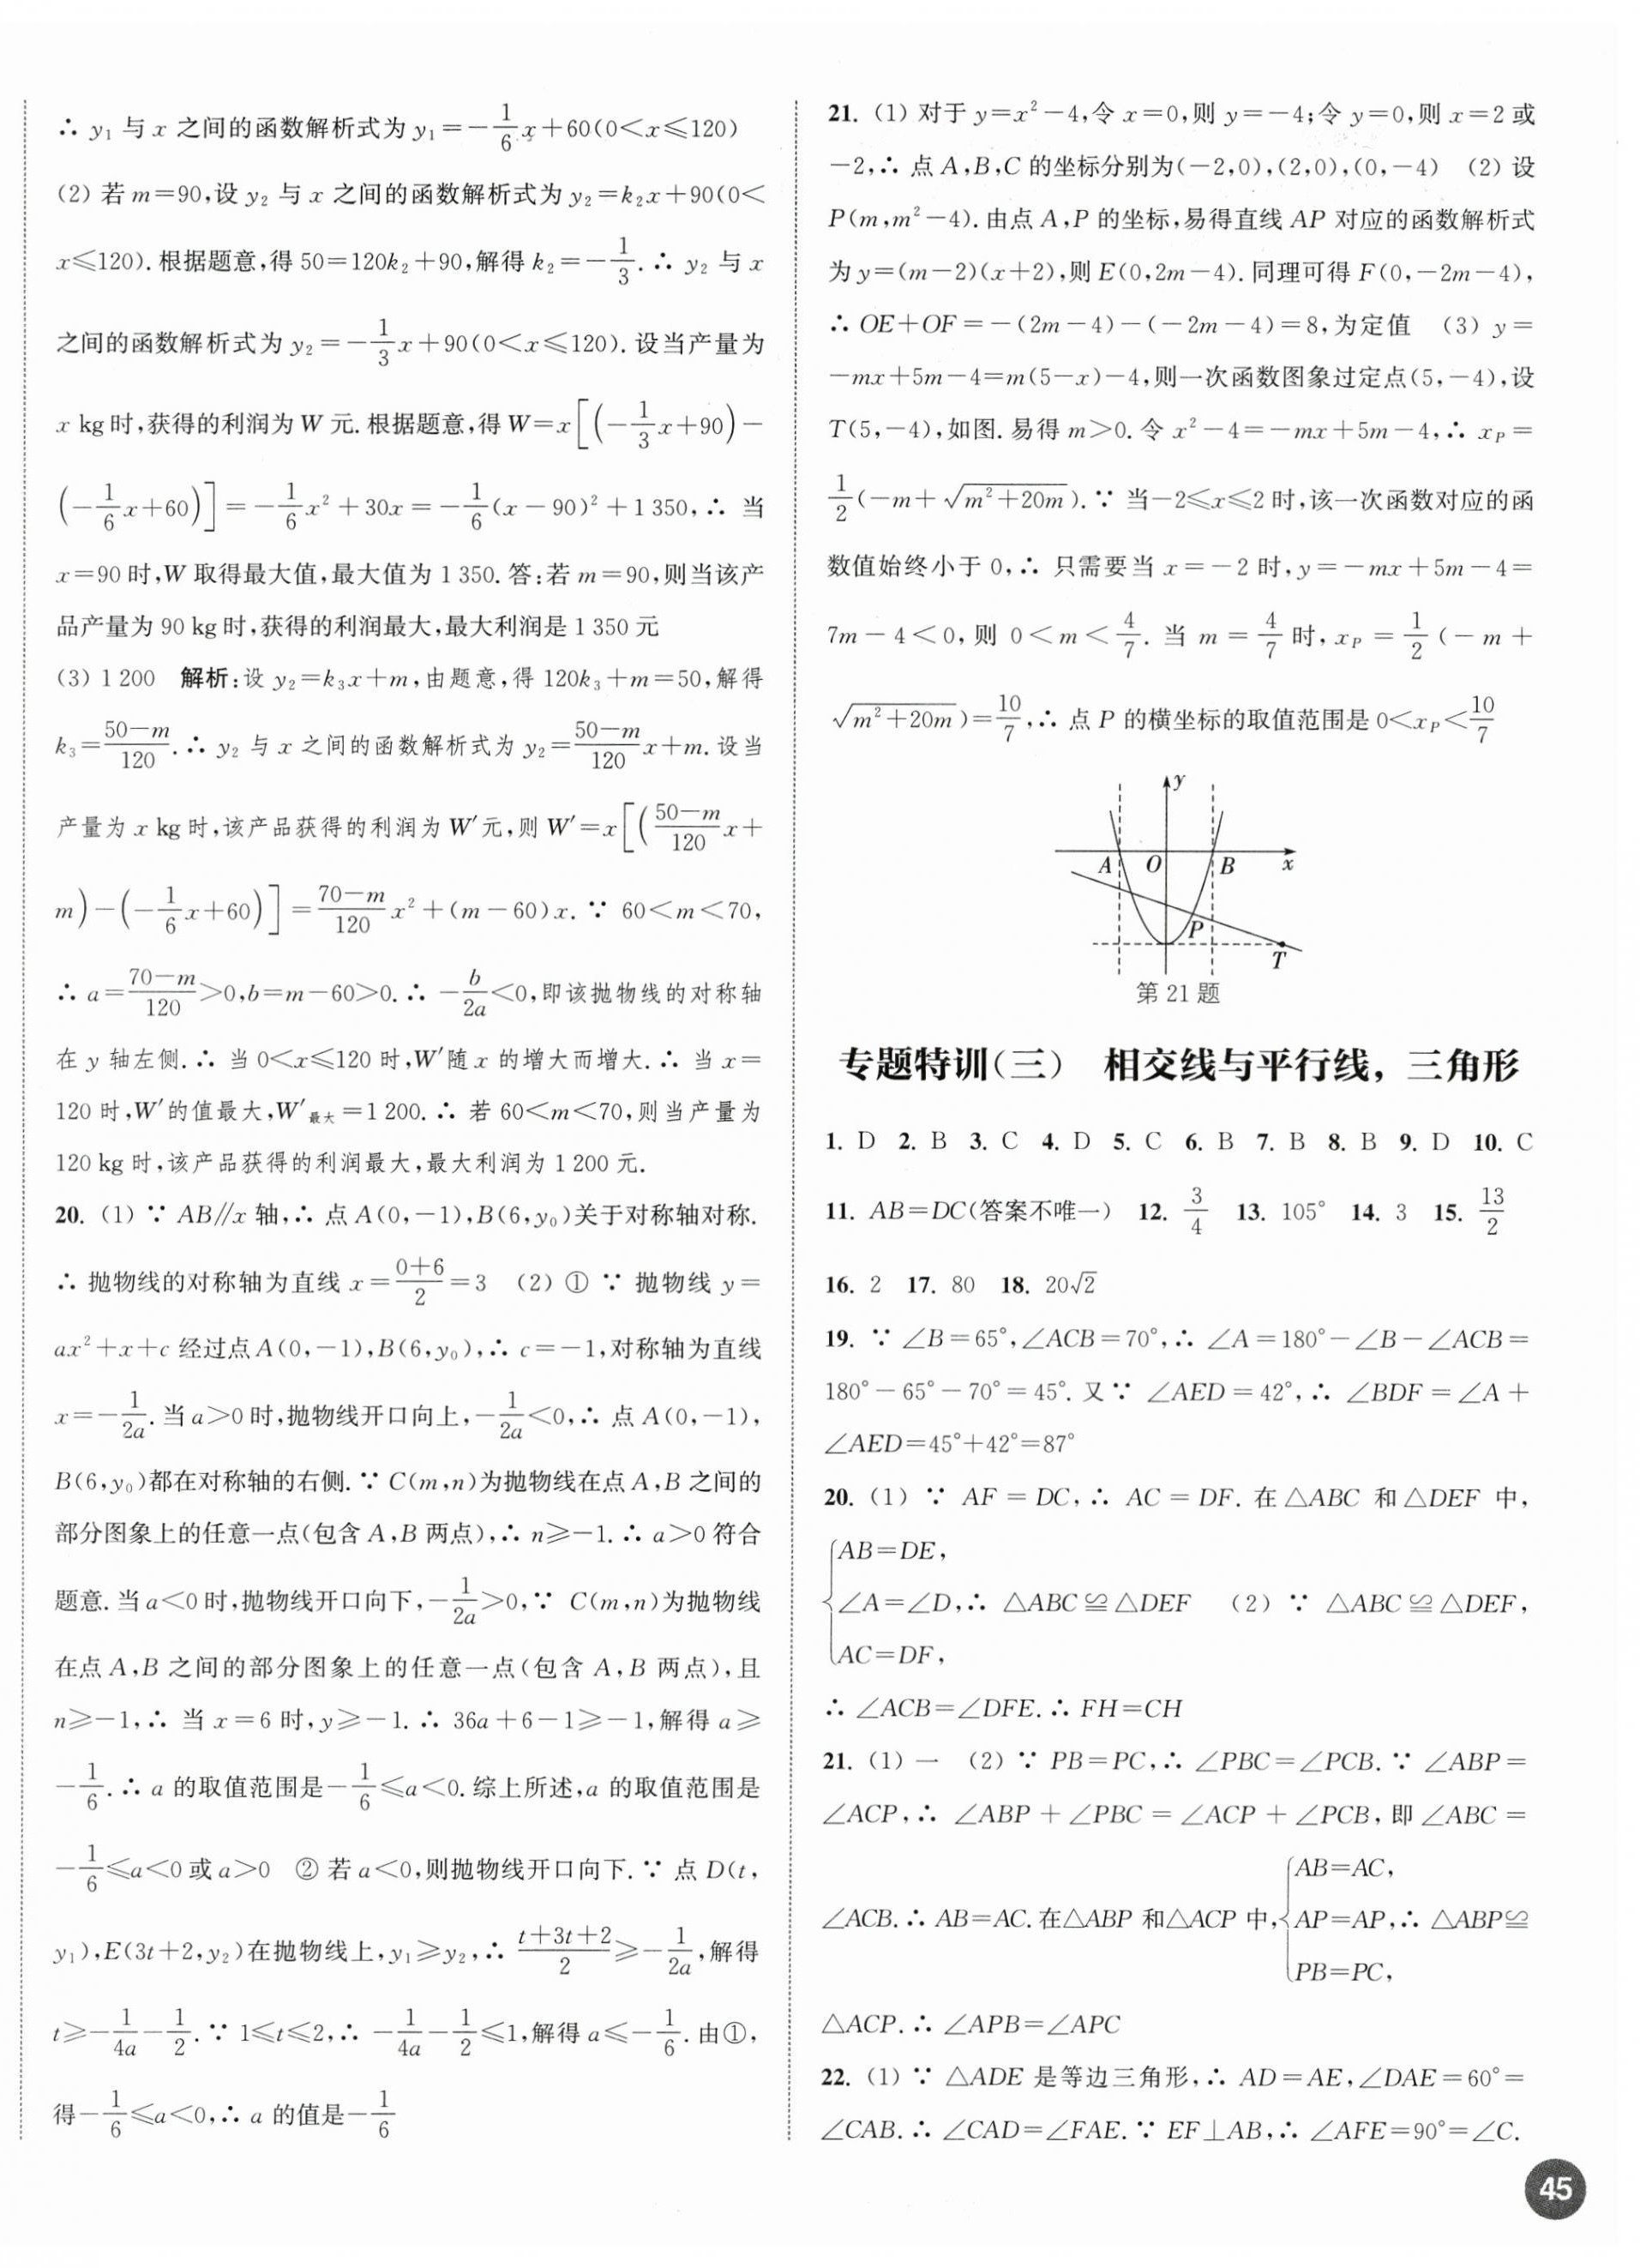 ∴ y₁ 与 x 之间的函数解析式为 y₁=-1/6x+60(0<x≤120)
(2) 若 m=90,设 y₂ 与 x 之间的函数解析式为 y₂=k₂x+90(0<
x≤120).根据题意,得 50=120k₂+90,解得 k₂=-1/3.∴ y₂ 与 x
之间的函数解析式为 y₂=-1/3x+90(0<x≤120).设当产量为
x kg时,获得的利润为 W 元.根据题意,得 W=x[(-1/3x+90)-
(-1/6x+60)]=-1/6x²+30x=-1/6(x-90)²+1 350,∴ 当
x=90 时,W 取得最大值,最大值为 1 350.答:若 m=90,则当该产
品产量为 90 kg 时,获得的利润最大,最大利润是 1 350 元
(3) 1 200 解析:设 y₂=k₃x+m,由题意,得 120k₃+m=50,解得
k₃=(50-m)/120.∴ y₂ 与 x 之间的函数解析式为 y₂=(50-m)/120 x+m.设当
产量为 x kg 时,该产品获得的利润为 W′元,则 W′=x[((50-m)/120 x+
m)-(-1/6x+60)]=(70-m)/120 x²+(m-60)x.∵ 60<m<70,
∴ a=(70-m)/120>0,b=m-60>0.∴ -b/2a<0,即该抛物线的对称轴
在 y 轴左侧.∴ 当 0<x≤120 时,W′随 x 的增大而增大.∴ 当 x=
120 时,W′的值最大,W′最大=1 200.∴ 若 60<m<70,则当产量为
120 kg 时,该产品获得的利润最大,最大利润为 1 200 元.
20. (1) ∵ AB∥x 轴,∴ 点 A(0,-1),B(6,y₀)关于对称轴对称.
∴ 抛物线的对称轴为直线 x=(0+6)/2=3 (2) ① ∵ 抛物线 y=
ax²+x+c 经过点 A(0,-1),B(6,y₀),∴ c=-1,对称轴为直线
x=-1/2a.当 a>0 时,抛物线开口向上,-1/2a<0,∴ 点 A(0,-1),
B(6,y₀)都在对称轴的右侧.∵ C(m,n)为抛物线在点 A,B 之间的
部分图象上的任意一点(包含 A,B 两点),∴ n≥-1.∴ a>0 符合
题意.当 a<0 时,抛物线开口向下,-1/2a>0,∵ C(m,n)为抛物线
在点 A,B 之间的部分图象上的任意一点(包含 A,B 两点),且
n≥-1,∴ 当 x=6 时,y≥-1.∴ 36a+6-1≥-1,解得 a≥
-1/6.∴ a 的取值范围是-1/6≤a<0.综上所述,a 的取值范围是
-1/6≤a<0 或 a>0 ② 若 a<0,则抛物线开口向下.∵ 点 D(t,
y₁),E(3t+2,y₂)在抛物线上,y₁≥y₂,∴ (t+3t+2)/2≥-1/2a,解得
t≥-1/4a-1/2.∵ 1≤t≤2,∴ -1/4a-1/2≤1,解得 a≤-1/6.由①,
得-1/6≤a<0,∴ a 的值是-1/6
21. (1) 对于 y=x²-4,令 x=0,则 y=-4;令 y=0,则 x=2 或
-2,∴ 点 A,B,C 的坐标分别为(-2,0),(2,0),(0,-4) (2) 设
P(m,m²-4).由点 A,P 的坐标,易得直线 AP 对应的函数解析式
为 y=(m-2)(x+2),则 E(0,2m-4).同理可得 F(0,-2m-4),
∴ OE+OF=-(2m-4)-(-2m-4)=8,为定值 (3) y=
-mx+5m-4=m(5-x)-4,则一次函数图象过定点(5,-4),设
T(5,-4),如图.易得 m>0.令 x²-4=-mx+5m-4,∴ xP=
1/2(-m+√(m²+20m)).∵ 当-2≤x≤2 时,该一次函数对应的函
数值始终小于 0,∴ 只需要当 x=-2 时,y=-mx+5m-4=
7m-4<0,则 0<m<4/7.当 m=4/7 时,xP=1/2(-m+
√(m²+20m))=10/7,∴ 点 P 的横坐标的取值范围是 0<xP<10/7
y
A O B x
P
T
第 21 题
专题特训(三) 相交线与平行线,三角形
1. D 2. B 3. C 4. D 5. C 6. B 7. B 8. B 9. D 10. C
11. AB=DC(答案不唯一) 12. 3/4 13. 105° 14. 3 15. 13/2
16. 2 17. 80 18. 20√2
19. ∵ ∠B=65°,∠ACB=70°,∴ ∠A=180°-∠B-∠ACB=
180°-65°-70°=45°.又∵ ∠AED=42°,∴ ∠BDF=∠A+
∠AED=45°+42°=87°
20. (1) ∵ AF=DC,∴ AC=DF.在△ABC 和△DEF 中,
AB=DE,
∠A=∠D,∴ △ABC≌△DEF (2) ∵ △ABC≌△DEF,
AC=DF,
∴ ∠ACB=∠DFE.∴ FH=CH
21. (1) 一 (2) ∵ PB=PC,∴ ∠PBC=∠PCB.∵ ∠ABP=
∠ACP,∴ ∠ABP+∠PBC=∠ACP+∠PCB,即∠ABC=
AB=AC,
∠ACB.∴ AB=AC.在△ABP 和△ACP 中,{AP=AP,∴ △ABP≌
PB=PC,
△ACP.∴ ∠APB=∠APC
22. (1) ∵ △ADE 是等边三角形,∴ AD=AE,∠DAE=60°=
∠CAB.∴ ∠CAD=∠FAE.∵ EF⊥AB,∴ ∠AFE=90°=∠C.
45